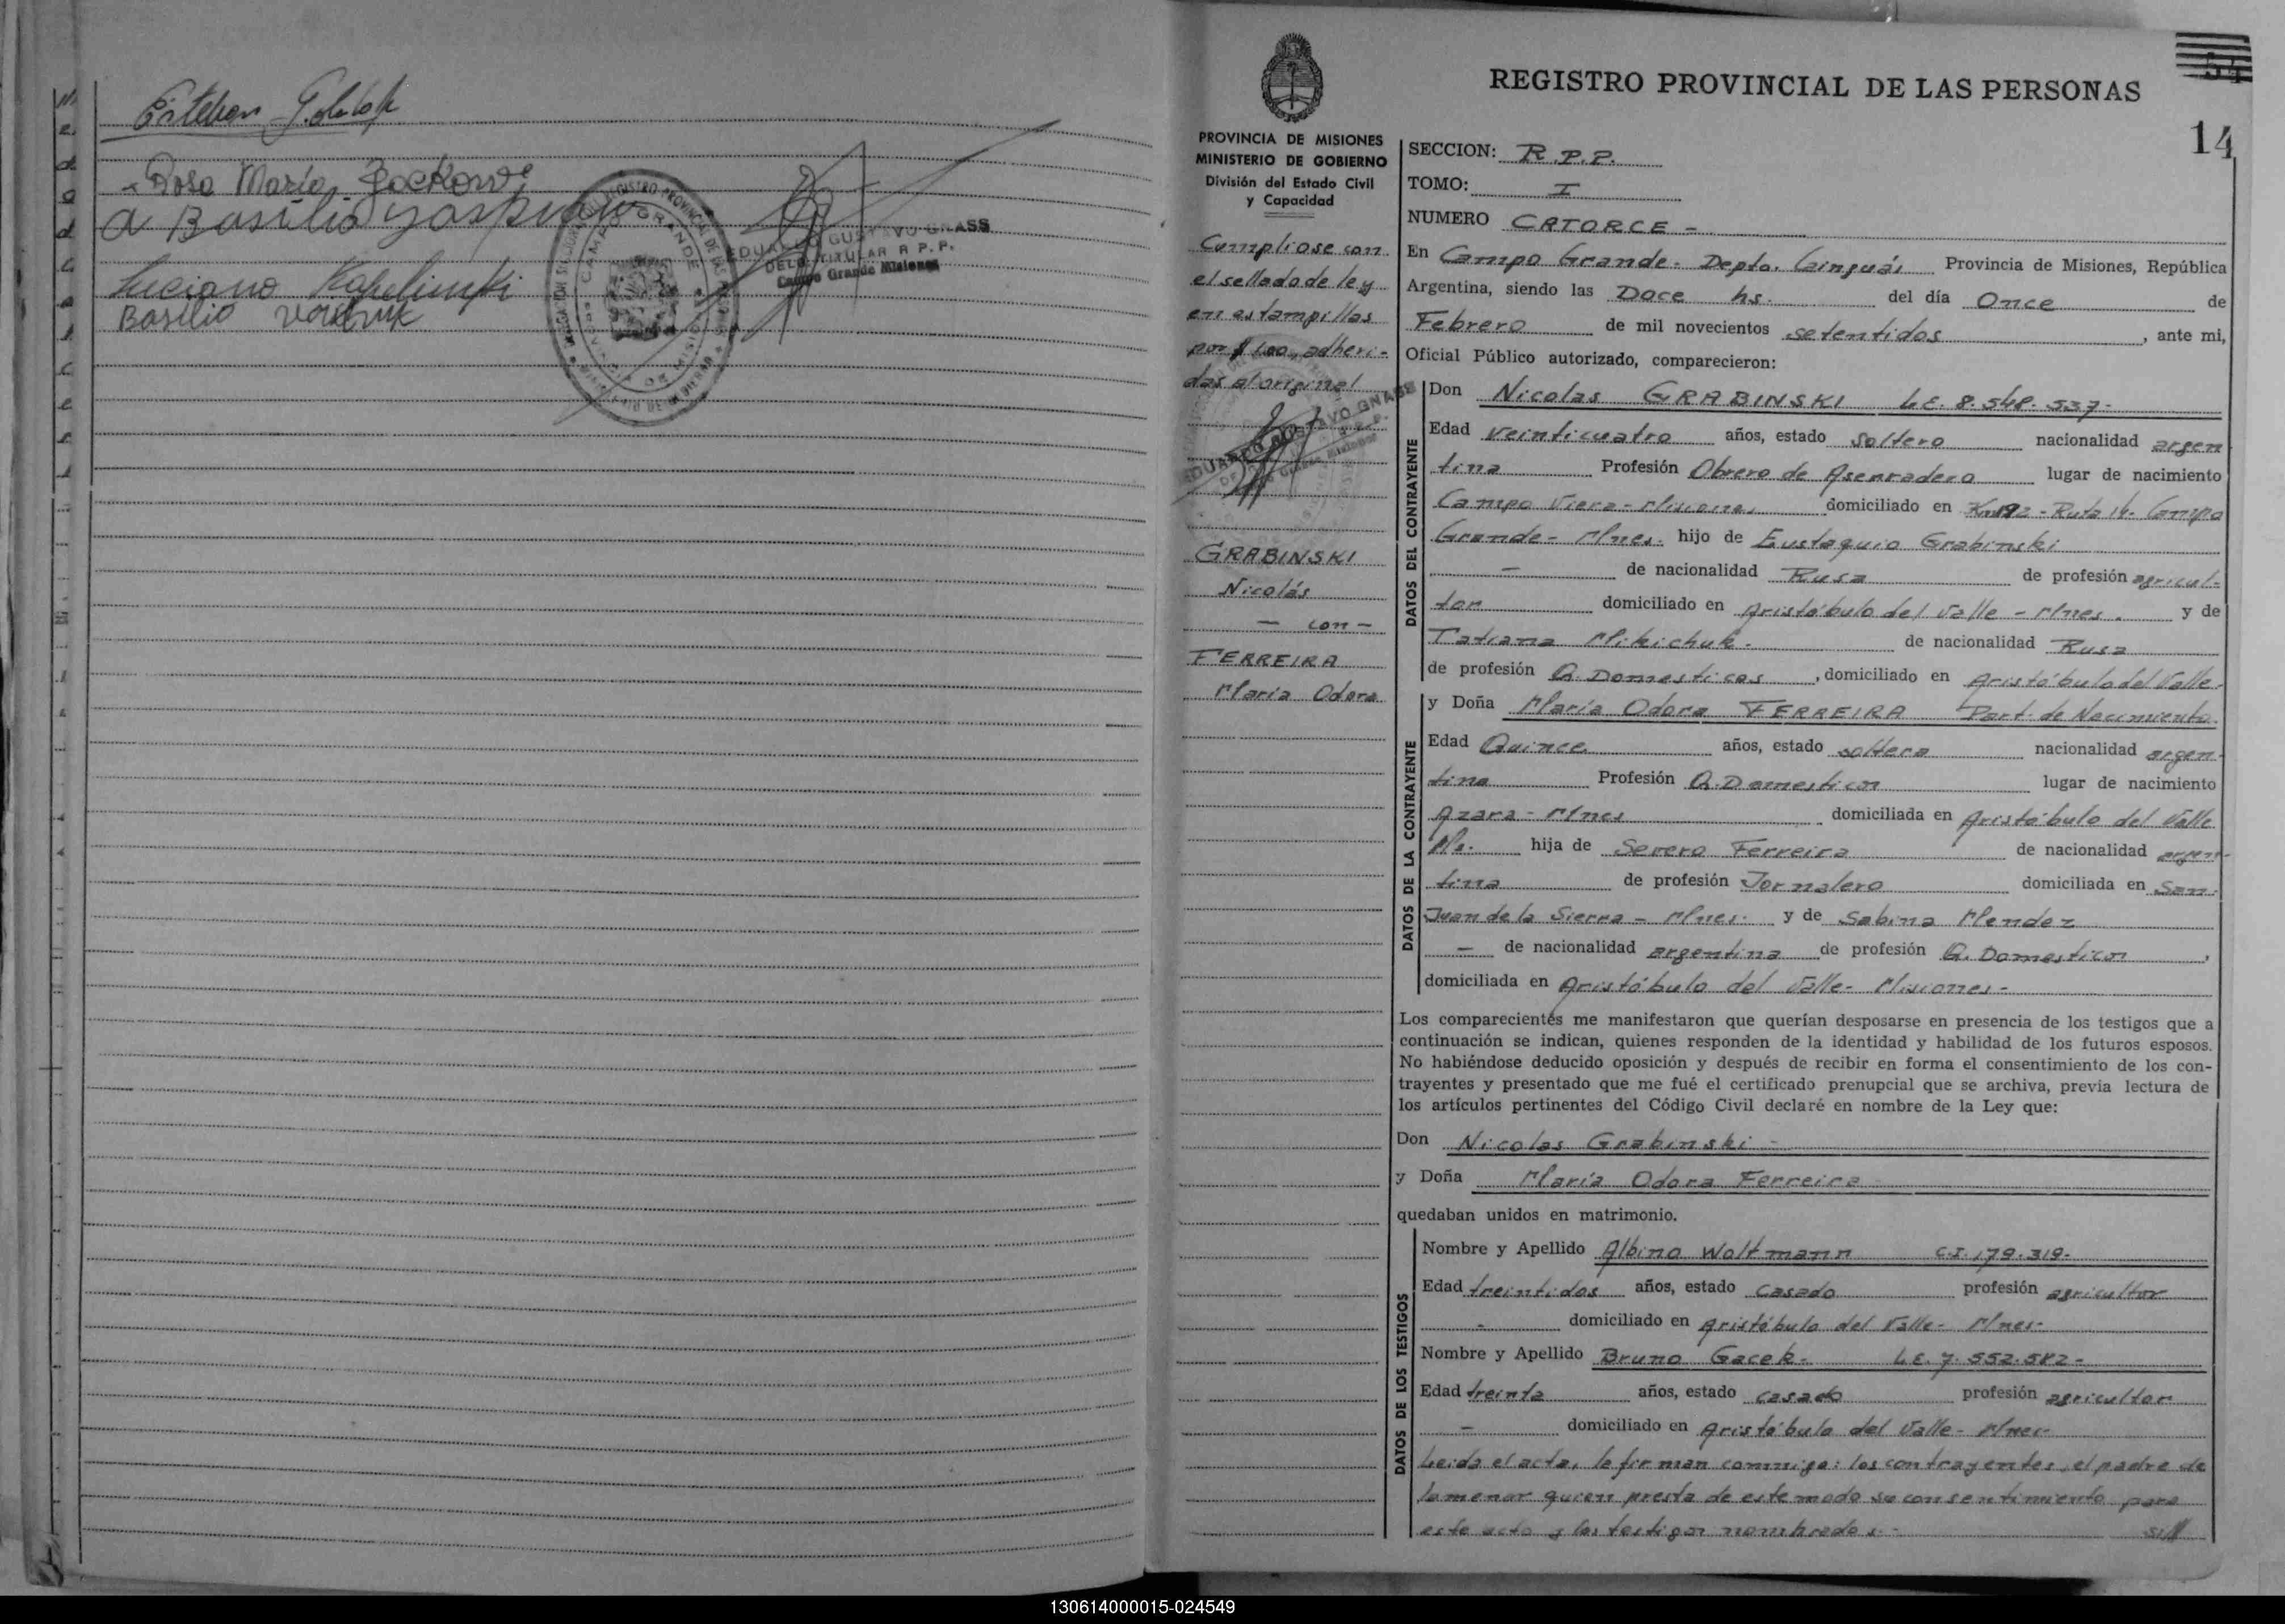 Esteban
Rosa María
Basilio
Luciano
Basilio
EDUARDO GUSTAVO GNASS
DELEG. TITULAR R.P.P.
Campo Grande Misiones
CAMPO GRANDE
54
REGISTRO PROVINCIAL DE LAS PERSONAS
14
PROVINCIA DE MISIONES
MINISTERIO DE GOBIERNO
División del Estado Civil
y Capacidad
Cumpliose con
el sellado de ley
en estampillas
por $ 1.00, adheri-
das al original
EDUARDO GUSTAVO GNASS
GRABINSKI
Nicolás
- con -
FERREIRA
María Odora
SECCION: R.P.P.
TOMO: I
NUMERO CATORCE -
En Campo Grande- Depto. Cainguás Provincia de Misiones, República
Argentina, siendo las Doce hs. del día Once de
Febrero de mil novecientos setentidos, ante mi,
Oficial Público autorizado, comparecieron:
DATOS DEL CONTRAYENTE
Don Nicolas GRABINSKI L.E. 8.548.537-
Edad veinticuatro años, estado soltero nacionalidad argen
tina Profesión Obrero de Aserradero lugar de nacimiento
Campo Viera - Misiones domiciliado en Km 192 - Ruta 14- Campo
Grande - Mnes. hijo de Eustaquio Grabinski
- de nacionalidad Rusa de profesión agricul-
tor domiciliado en Aristóbulo del Valle - Mnes. y de
Tatiana Mikichuk. de nacionalidad Rusa
de profesión Q. Domesticos, domiciliado en Aristóbulo del Valle-
DATOS DE LA CONTRAYENTE
y Doña María Odora FERREIRA Part. de Nacimiento
Edad Quince años, estado soltera nacionalidad argen-
tina Profesión Q. Domesticos lugar de nacimiento
Azara - Mnes domiciliada en Aristóbulo del Valle
hija de Severo Ferreira de nacionalidad argen-
tina de profesión Jornalero domiciliada en San
Juan de la Sierra - Mnes. y de Sabina Mendez
- de nacionalidad argentina de profesión Q. Domesticos,
domiciliada en Aristóbulo del Valle- Misiones-
Los comparecientes me manifestaron que querían desposarse en presencia de los testigos que a
continuación se indican, quienes responden de la identidad y habilidad de los futuros esposos.
No habiéndose deducido oposición y después de recibir en forma el consentimiento de los con-
trayentes y presentado que me fué el certificado prenupcial que se archiva, previa lectura de
los artículos pertinentes del Código Civil declaré en nombre de la Ley que:
Don Nicolas Grabinski -
y Doña María Odora Ferreira
quedaban unidos en matrimonio.
DATOS DE LOS TESTIGOS
Nombre y Apellido Albino Woltmann C.I. 179.319-
Edad treintidos años, estado casado profesión agricultor
- domiciliado en Aristóbulo del Valle- Mnes-
Nombre y Apellido Bruno Gacek- L.E. 7.552.582-
Edad treinta años, estado casado profesión agricultor
- domiciliado en Aristóbulo del Valle- Mnes-
Leida el acta, la firman conmigo: los contrayentes, el padre de
la menor quien presta de este modo su consentimiento para
este acto y los testigos nombrados.-
130614000015-024549